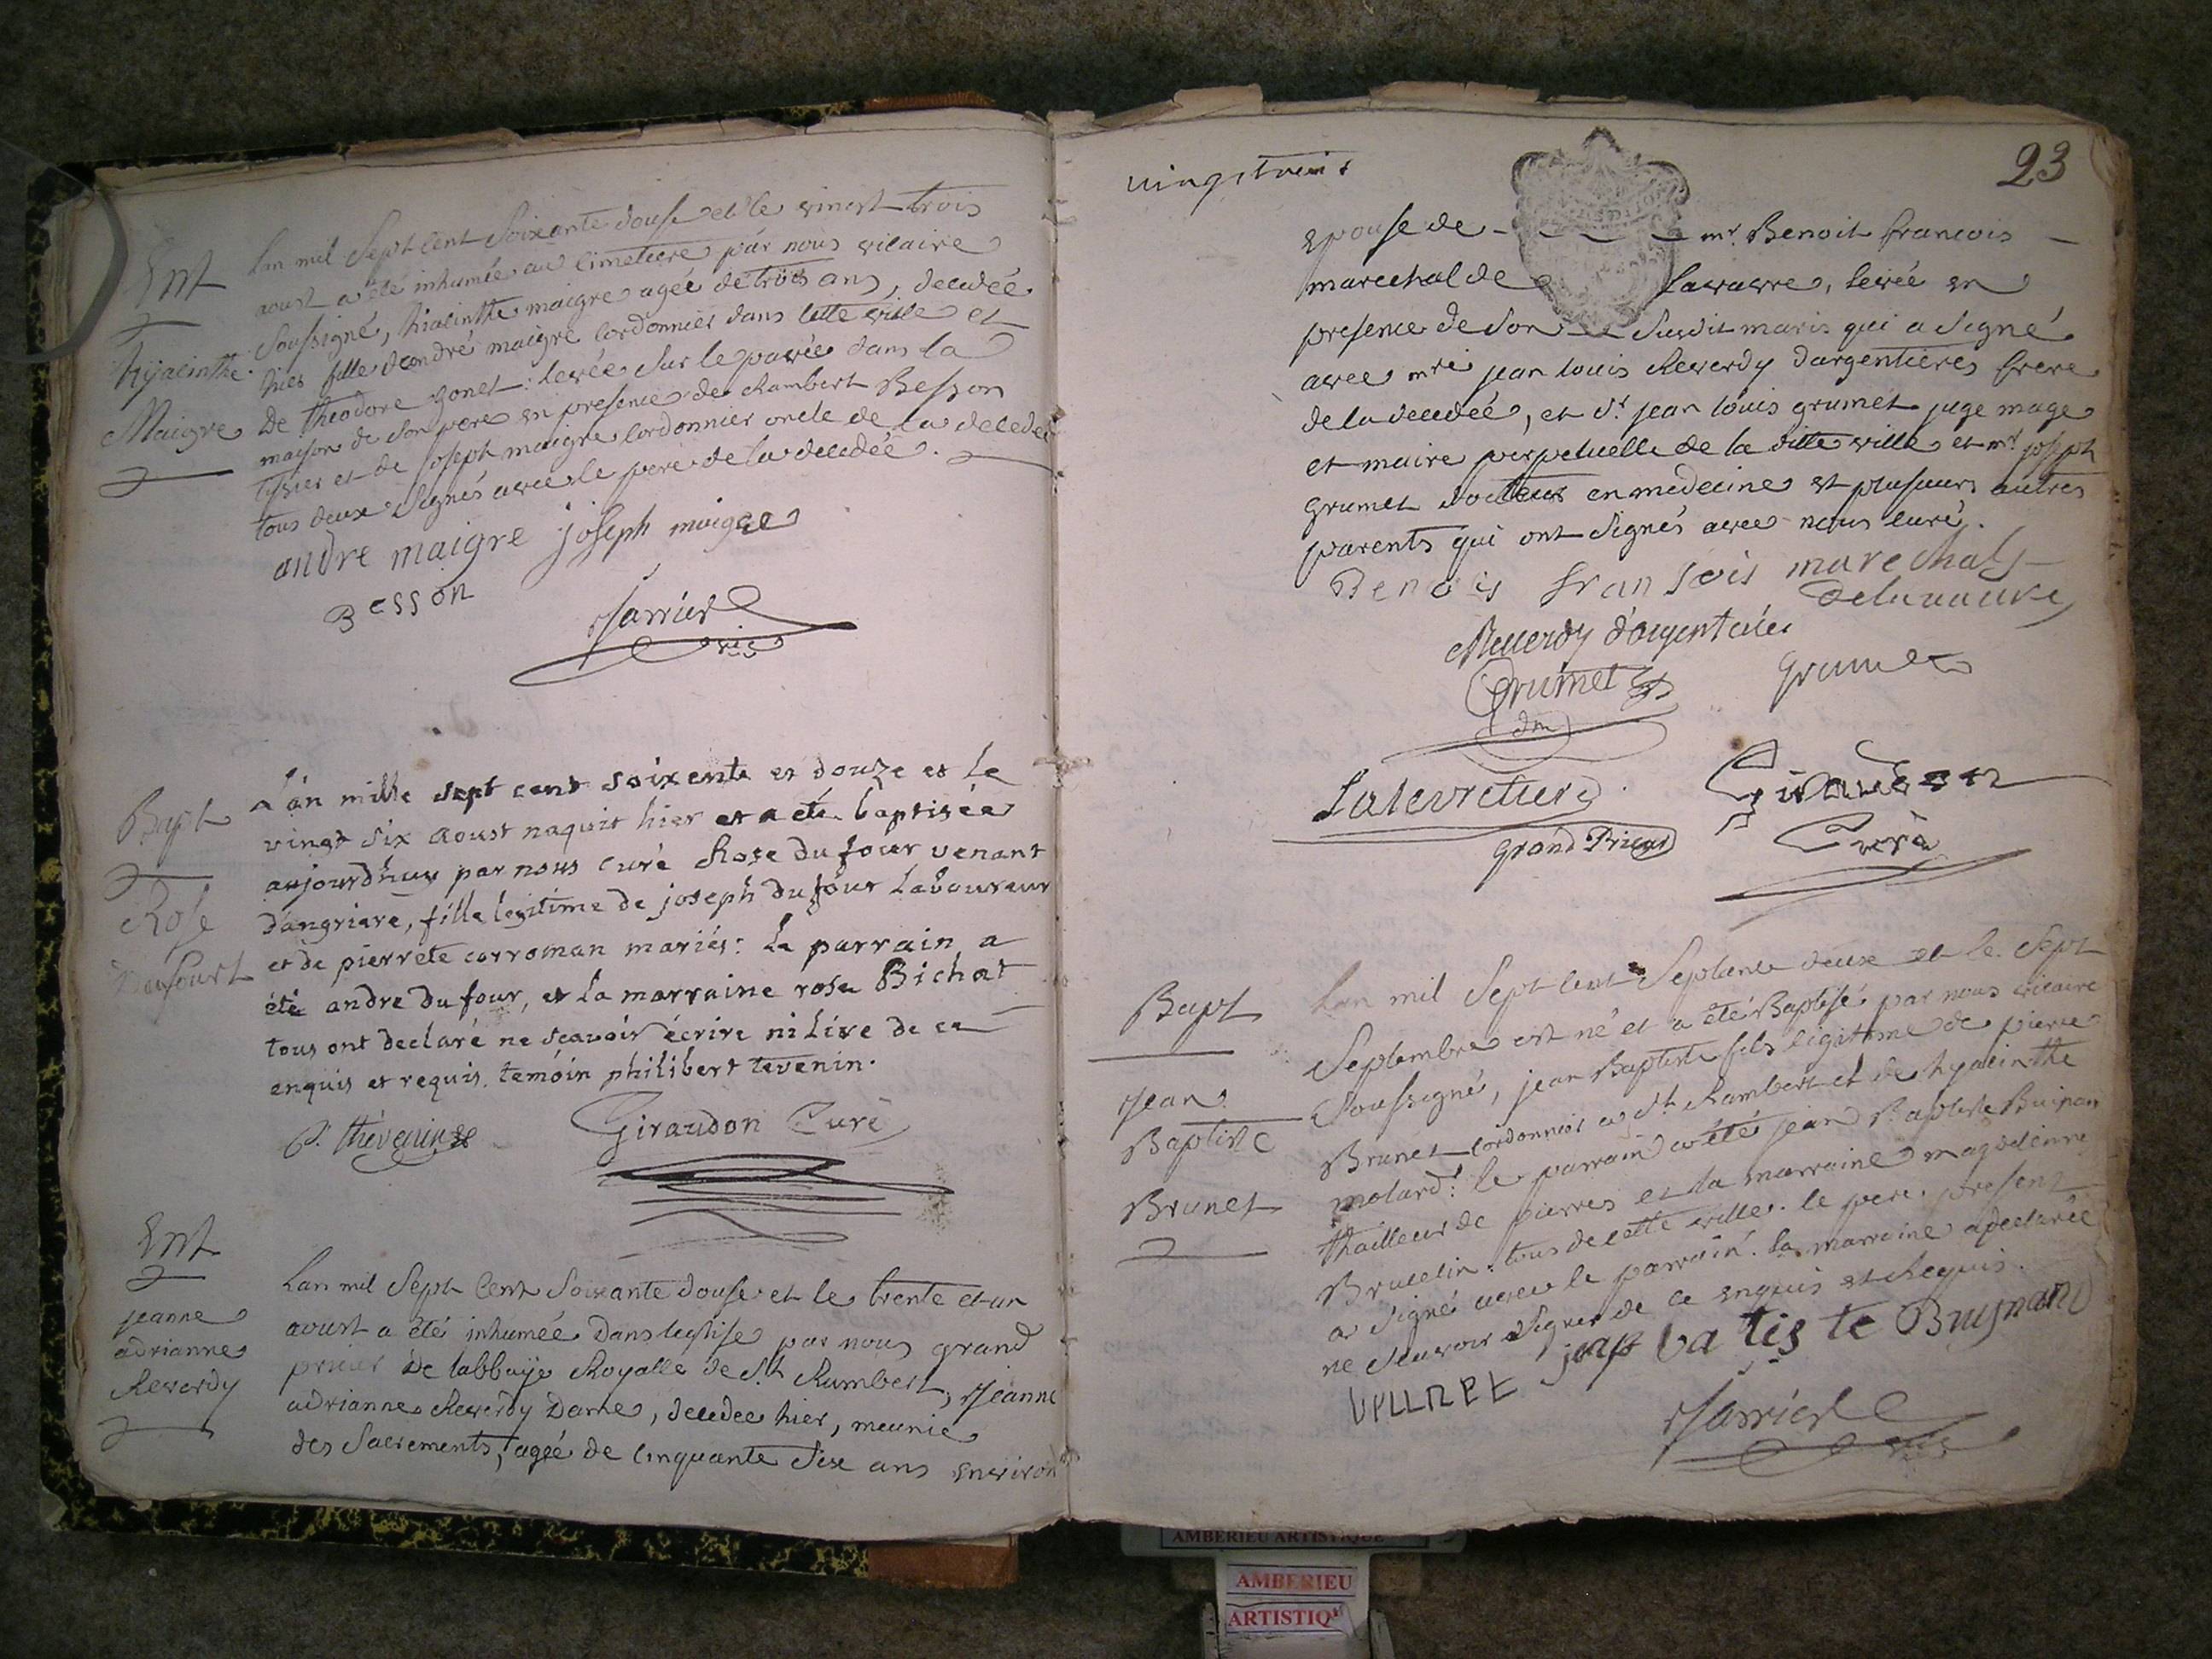 Ent
Hÿacinthe
Maigre
Lan mil Sept Cent Soixante douse et le vinct trois
aoust a été inhumée au Cimetiere par nous vicaire
Soussigné, hiacinthe maigre agée de trois ans, decedée
hier fille d'andré maigre Cordonnier dans Cette ville et
De theodore gonet: levée Sur le pavée dans la
maison de Son pere en presence de Rambert Besson
tissier et de joseph maigre Cordonnier oncle de la decedée
tous deux Signés avec le pere de la decedée.
andre maigre joseph maigre
Besson
Jarrier
vic
Bapt
Rose
Dufourt
L'an mille sept cent soixente et douze et le
vingt six aoust naquit hier et a eté baptisée
aujourdhuy par nous curé Rose du four venant
d'angriere, fille legitime de joseph du four Laboureur
et de pierrete carroman mariés: Le parrain a
été andre du four, et la marraine rose Bichat
tous ont declaré ne scavoir écrire ni Lire de ce
enquis et requis. temoin philibert tevenin.
P. thevenin
Giraudon Curé
Ent
jeanne
adrianne
Reverdy
Lan mil Sept Cent Soixante douse et le trente et un
aoust a été inhumée Dans leglise par nous grand
prieur De labbaÿe Royalle de St Rambert, Jeanne
adrianne Reverdy Dame, decedee hier, meunie
des Sacrements, agée de Cinquante Six ans environ
vingttrois
23
epouse de mr. Benoit francois
marechal de Lavavre, levée en
presence de Son Susdit maris qui a Signé
avec mre jean louis Reverdy dargentieres frere
de la decedeé, et Sr jean louis grumet juge mage
et maire perpetuelle de la ditte ville et mr. joseph
grumet docteur en medecine et plusieurs autres
parents qui ont Signés avec nous Curé.
Benois fransois marechal
Delavavre
Reverdy d'argentiere
Grumet grumet
dm
Giraudon
Grand Prieur Curé
Bapt
Jean
Baptiste
Brunet
Lan mil Sept Cent Septante deux et le Sept
Septembre est né et a été Baptisé par nous vicaire
Soussigné, jean Baptiste fils ligitime de pierre
Brunet Cordonnier a St Rambert et de hyacinthe
molard: le parrain a été jean Baptiste Buynan
thailleur de pierres et la marraine magdelenne
Brucelin. tous de cette ville. le pere present
a Signé avec le parrain. la marraine a declarée
ne Scavoir Signer de ce enquis et Requis.
jean batiste Buynand
Jarrier
vic
AMBERIEU ARTISTIQUE
AMBERIEU
ARTISTIQ